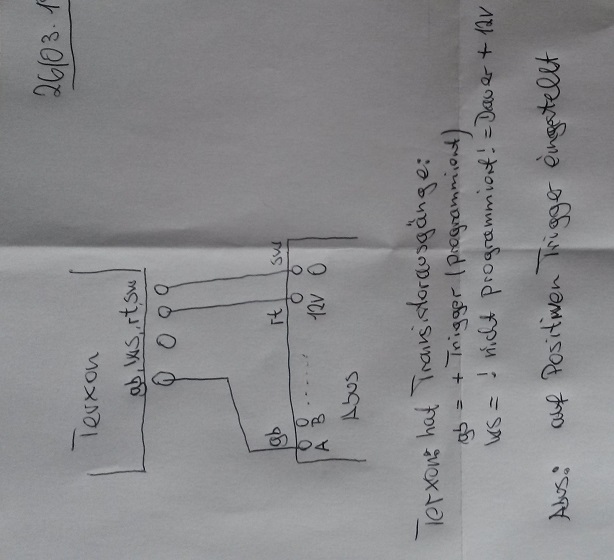 Terxon
gb, ws, rt, sw
gb rt sw
A B ..... 12V 0
Abus
Terxon: hat Transistorausgänge:
gb = + Trigger (programmiert)
ws = ! nicht programmiert! = Dauer + 12V
Abus: auf Positiven Trigger eingestellt